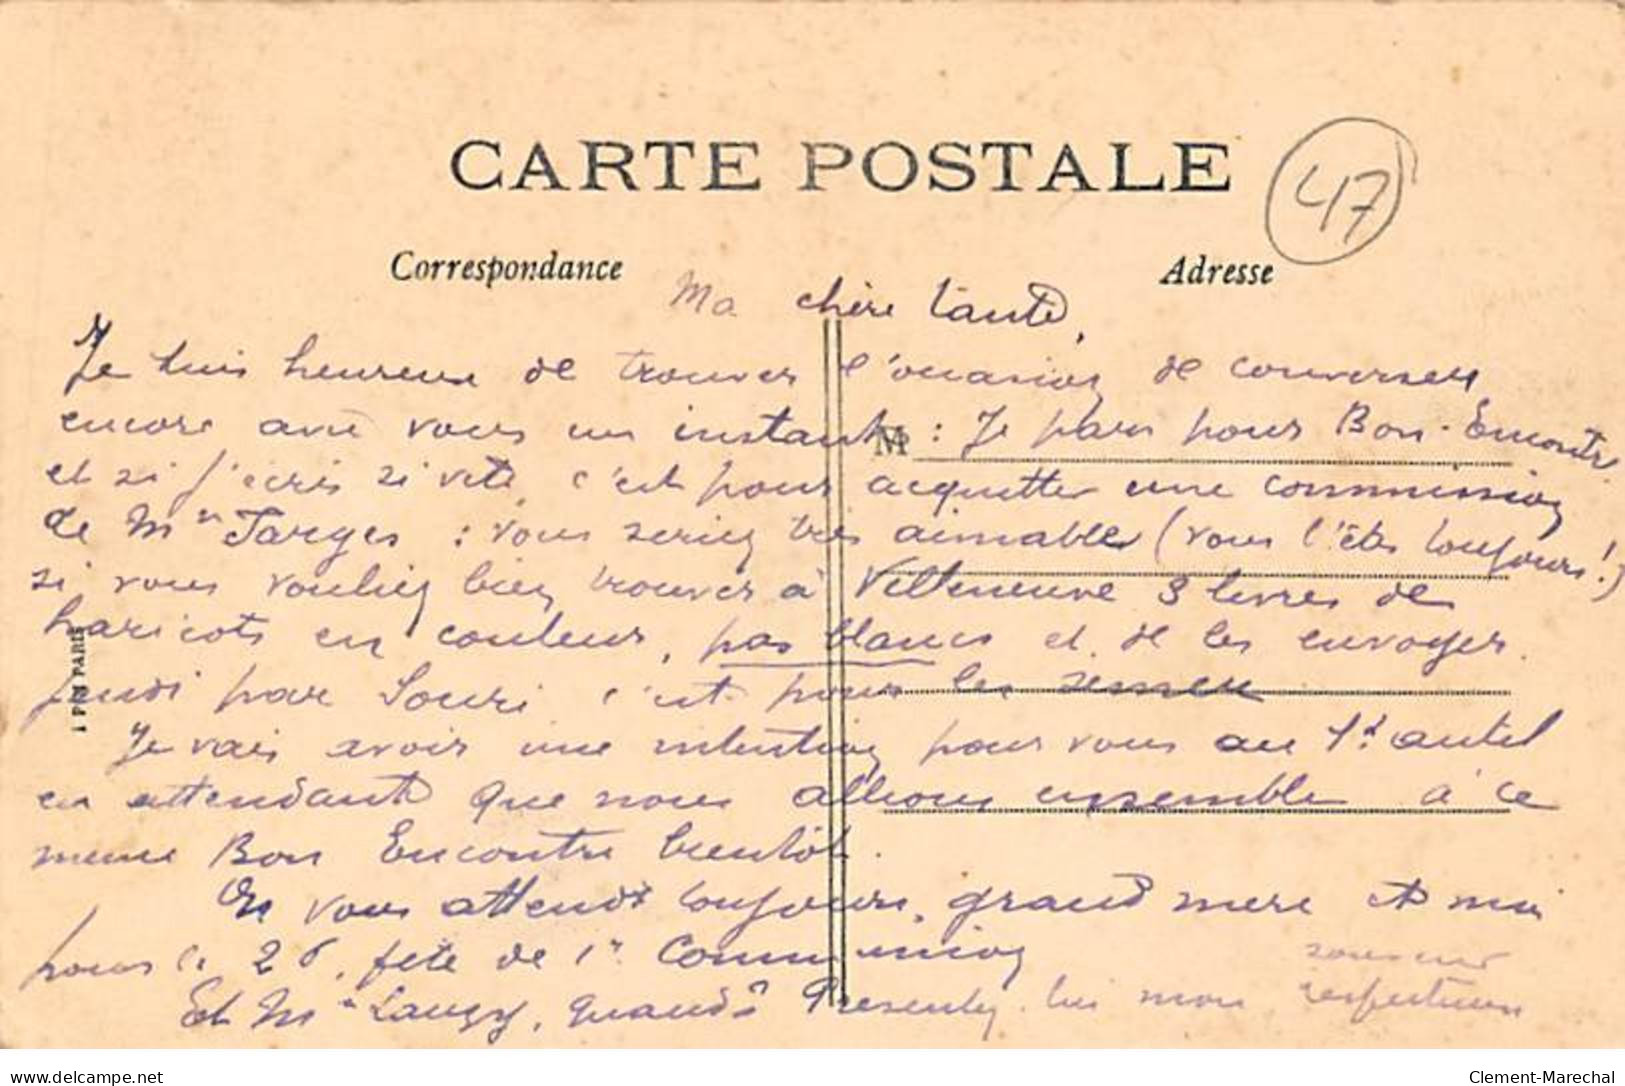 CARTE POSTALE
47
Correspondance
Adresse
Ma chère tante,
Je suis heureuse de trouver l'occasion de converser
encore avec vous un instant : Je pars pour Bon-Encontre
M
et si j'écris si vite, c'est pour acquitter une commission
de Mr Targes : vous seriez très aimable (vous l'êtes toujours !)
si vous vouliez bien trouver à Villeneuve 3 livres de
haricots en couleur, pas blancs et de les envoyer
jeudi par Souri c'est pour les semer
Je vais avoir une intention pour vous au Gd autel
en attendant que nous allions ensemble à ce
meme Bon Encontre bientôt.
On vous attend toujours, grand mere et moi
pour le 26, fête de 1re Communion
Et Me Laugy, quand ? Presentez lui mon souvenir
respectueux
PARIS
Clement-Marechal